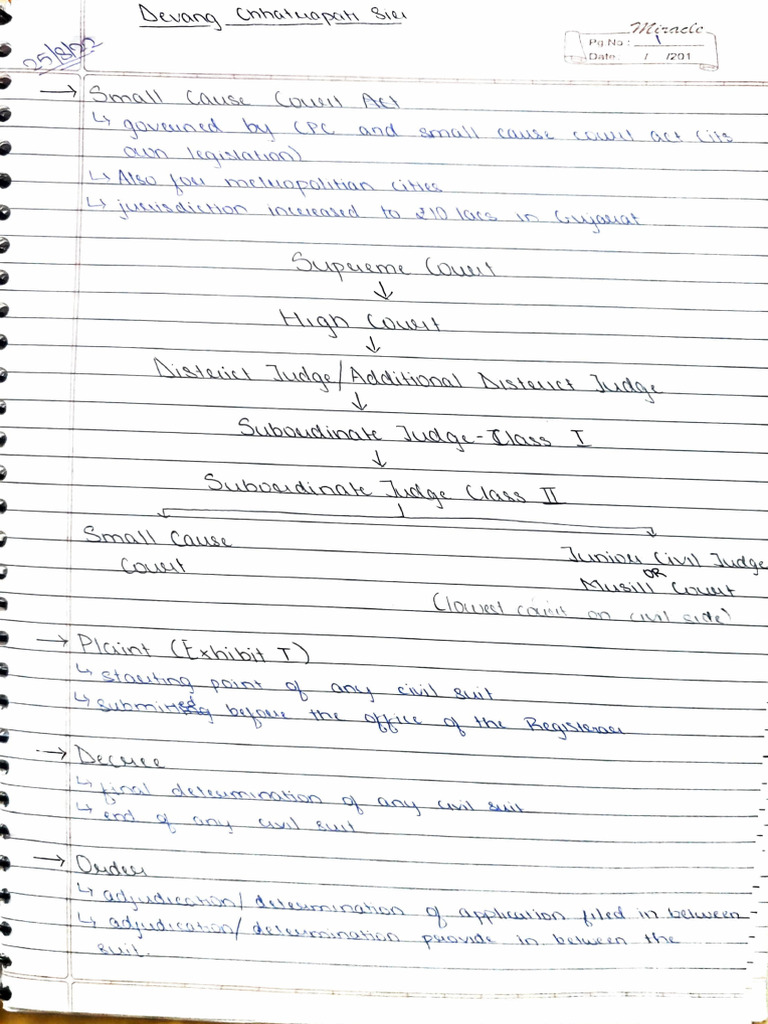 Devang Chhatrapati Sir
Miracle
Pg No: 1
Date: / /201
25/8/22
→ Small Cause Court Act
↳ governed by CPC and small cause court act (its
own legislation)
↳ Also for metropolitian cities
↳ jurisdiction increased to ₹10 lacs in Gujarat
Supreme Court
↓
High Court
↓
District Judge/Additional District Judge
↓
Subordinate Judge-Class I
↓
Subordinate Judge Class II
Small Cause
Court
Junior Civil Judge
OR
Musill Court
(lowest court on civil side)
→ Plaint (Exhibit I)
↳ starting point of any civil suit
↳ submitted before the office of the Registerar
→ Decree
↳ final determination of any civil suit
↳ end of any civil suit
→ Order
↳ adjudication/determination of application filed in between
↳ adjudication/determination provide in between the
suit.